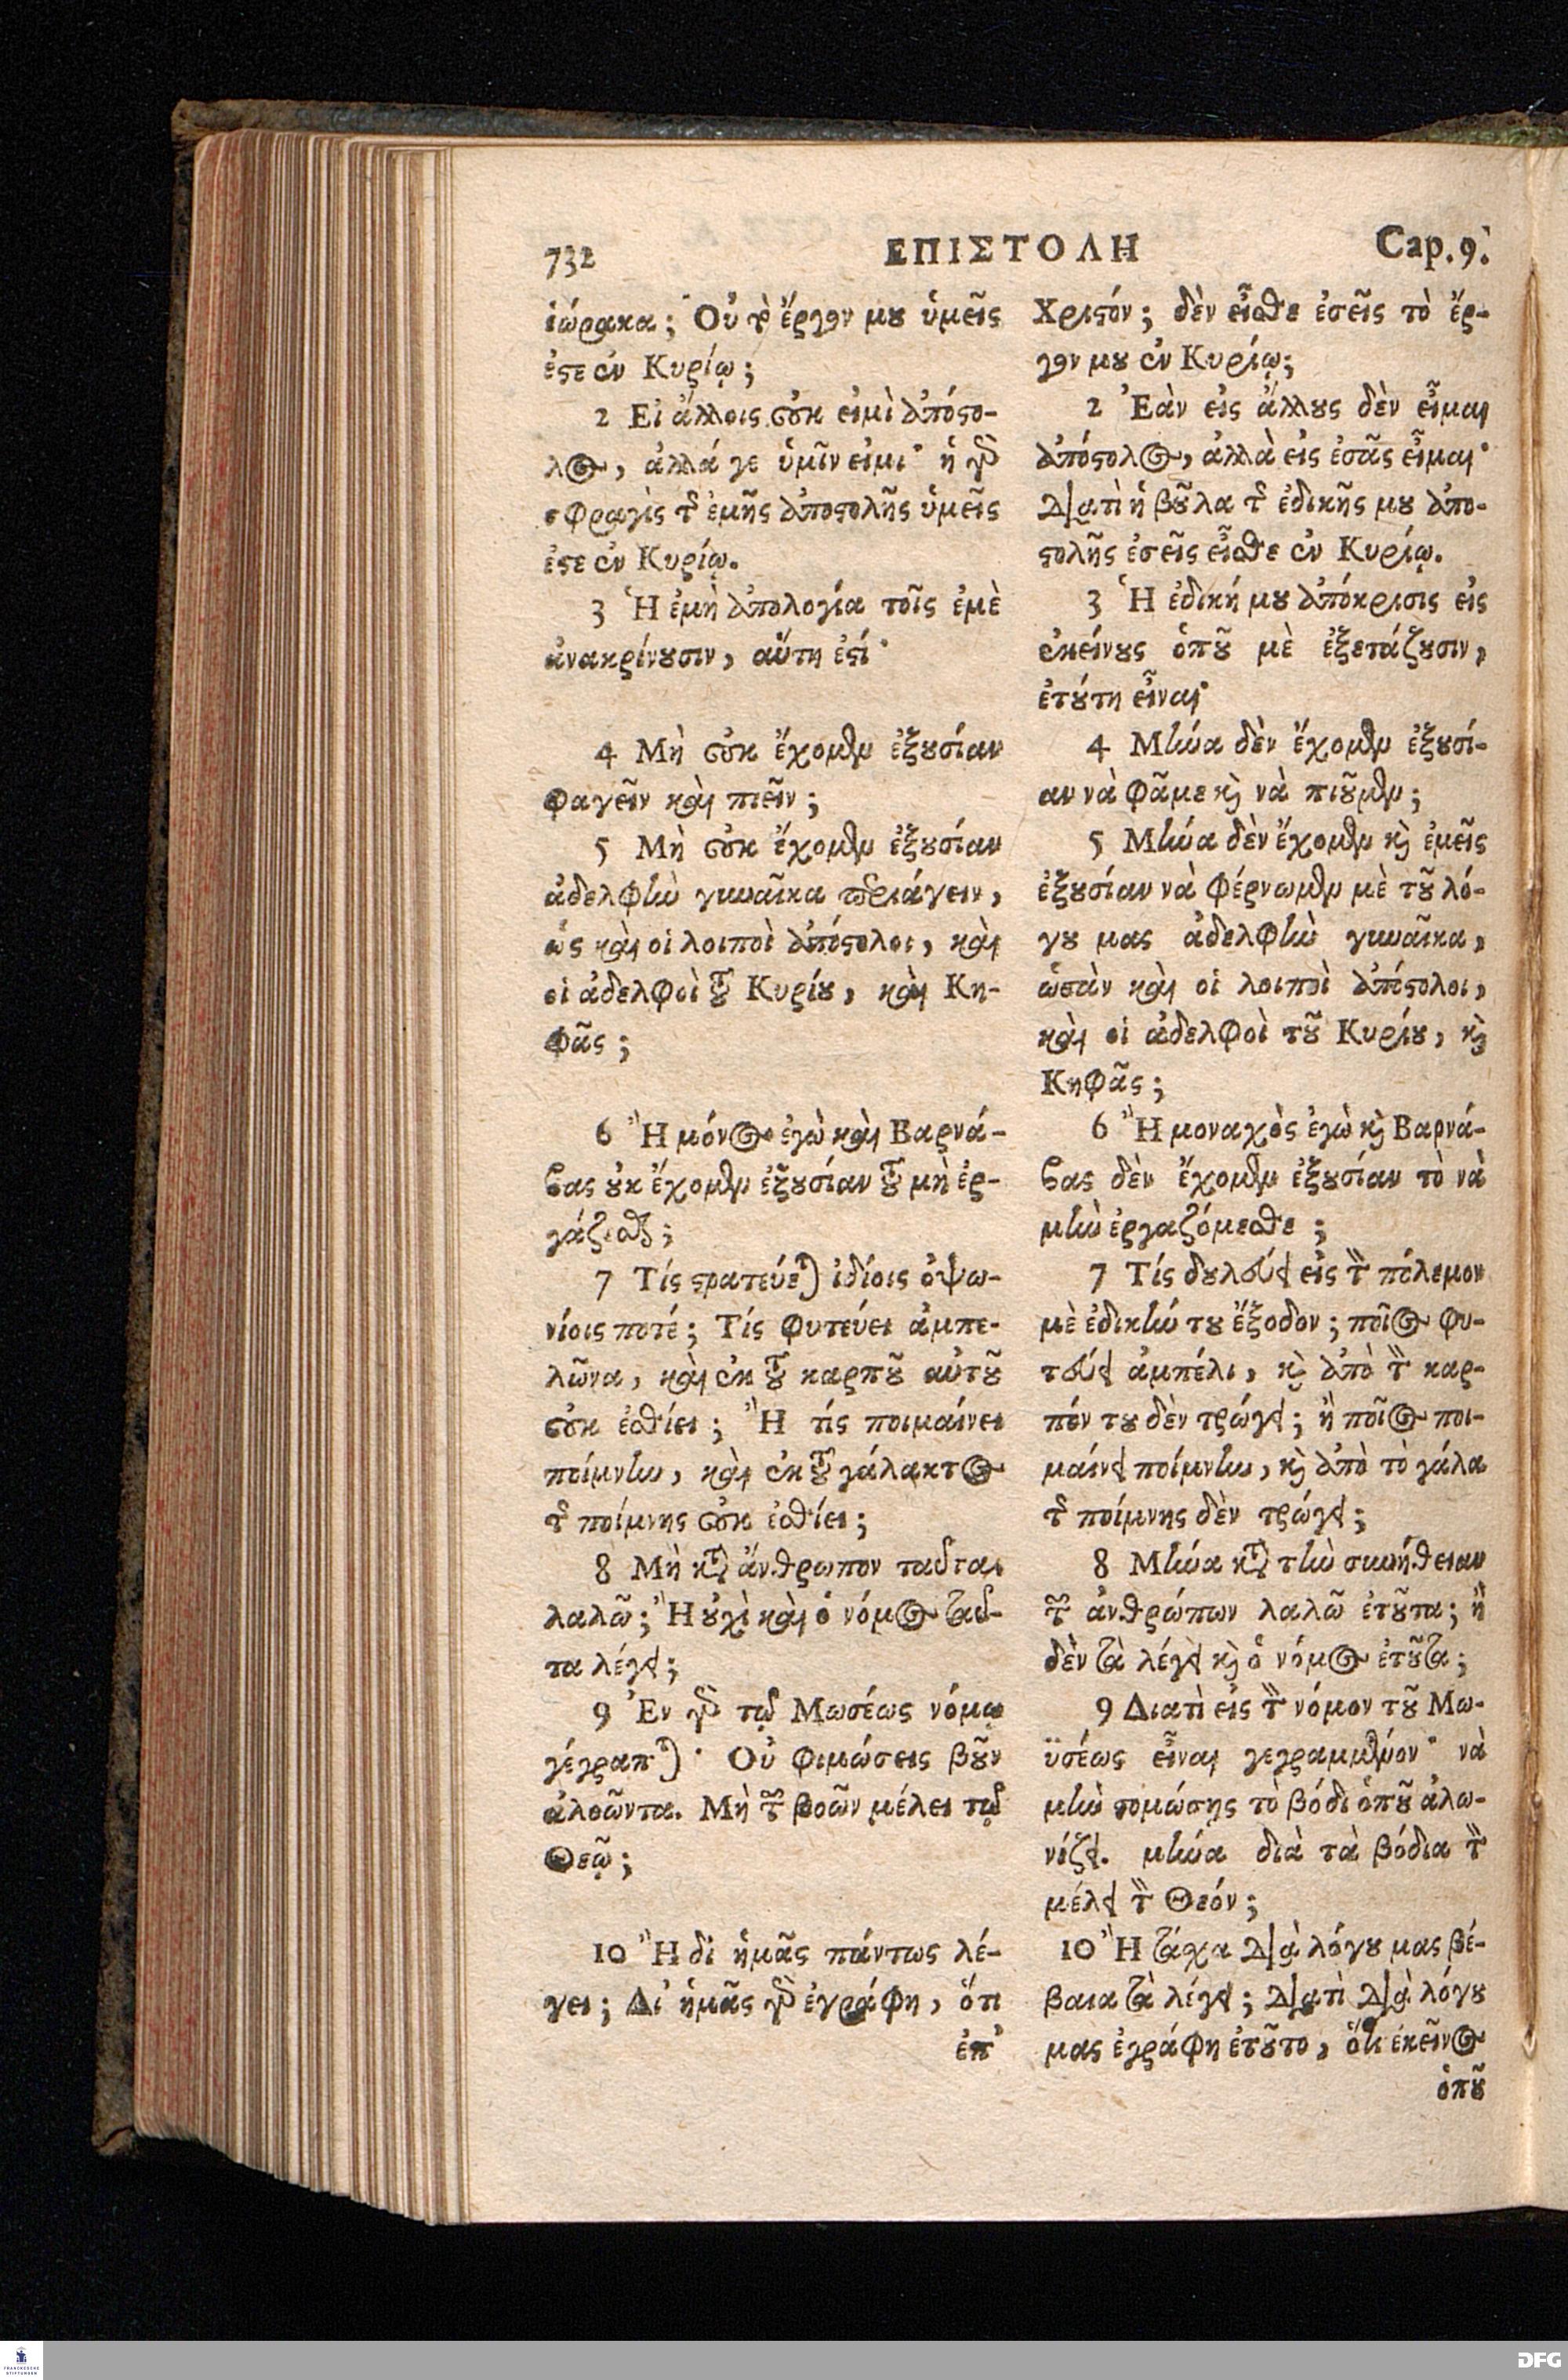 732
ΕΠΙΣΤΟΛΗ
Cap. 9.
ἑώρακα; Οὐ τὸ ἔργον μου ὑμεῖς
ἐϛε ἐν Κυρίῳ;
2 Εἰ ἄλλοις οὐκ εἰμὶ ἀπόϛο-
λος, ἀλλά γε ὑμῖν εἰμι· ἡ γὰρ
σφραγὶς τῆς ἐμῆς ἀποϛολῆς ὑμεῖς
ἐϛε ἐν Κυρίῳ.
3 Ἡ ἐμὴ ἀπολογία τοῖς ἐμὲ
ἀνακρίνουσιν, αὕτη ἐϛί·
4 Μὴ οὐκ ἔχομεν ἐξουσίαν
φαγεῖν καὶ πιεῖν;
5 Μὴ οὐκ ἔχομεν ἐξουσίαν
ἀδελφὴν γυναῖκα περιάγειν,
ὡς καὶ οἱ λοιποὶ ἀπόϛολοι, καὶ
οἱ ἀδελφοὶ τοῦ Κυρίου, καὶ Κη-
φᾶς;
6 Ἢ μόνος ἐγὼ καὶ Βαρνά-
βας οὐκ ἔχομεν ἐξουσίαν τοῦ μὴ ἐρ-
γάζεσθαι;
7 Τίς ϛρατεύεται ἰδίοις ὀψω-
νίοις ποτέ; Τίς φυτεύει ἀμπε-
λῶνα, καὶ ἐκ τοῦ καρποῦ αὐτοῦ
οὐκ ἐσθίει; Ἢ τίς ποιμαίνει
ποίμνην, καὶ ἐκ τοῦ γάλακτος
τῆς ποίμνης οὐκ ἐσθίει;
8 Μὴ κατὰ ἄνθρωπον ταῦτα
λαλῶ; Ἢ οὐχὶ καὶ ὁ νόμος ταῦ-
τα λέγει;
9 Ἐν γὰρ τῷ Μωσέως νόμῳ
γέγραπται· Οὐ φιμώσεις βοῦν
ἀλοῶντα. Μὴ τῶν βοῶν μέλει τῷ
Θεῷ;
10 Ἢ δι ἡμᾶς πάντως λέ-
γει; Δι ἡμᾶς γὰρ ἐγράφη, ὅτι
ἐπ'
Χριϛόν; δὲν εἶσθε ἐσεῖς τὸ ἔρ-
γον μου ἐν Κυρίῳ;
2 Ἐὰν εἰς ἄλλους δὲν εἶμαι
ἀπόϛολος, ἀλλὰ εἰς ἐσᾶς εἶμαι·
διατὶ ἡ βοῦλα τῆς ἐδικῆς μου ἀπο-
ϛολῆς ἐσεῖς εἶσθε ἐν Κυρίῳ.
3 Ἡ ἐδική μου ἀπόκρισις εἰς
ἐκείνους ὁποῦ μὲ ἐξετάζουσιν,
ἐτούτη εἶναι·
4 Μήνα δὲν ἔχομεν ἐξουσί-
αν νὰ φᾶμε καὶ νὰ πιοῦμεν;
5 Μήνα δὲν ἔχομεν καὶ ἐμεῖς
ἐξουσίαν νὰ φέρνωμεν μὲ τοῦ λό-
γου μας ἀδελφὴν γυναῖκα,
ὡσὰν καὶ οἱ λοιποὶ ἀπόϛολοι,
καὶ οἱ ἀδελφοὶ τοῦ Κυρίου, καὶ
Κηφᾶς;
6 Ἢ μοναχὸς ἐγὼ καὶ Βαρνά-
βας δὲν ἔχομεν ἐξουσίαν τὸ νὰ
μὴν ἐργαζόμεσθε;
7 Τίς δουλεύει εἰς τὸν πόλεμον
μὲ ἐδικήν του ἔξοδον; ποῖος φυ-
τεύει ἀμπέλι, καὶ ἀπὸ τὸν καρ-
πόν του δὲν τρώγει; ἢ ποῖος ποι-
μαίνει ποίμνην, καὶ ἀπὸ τὸ γάλα
τῆς ποίμνης δὲν τρώγει;
8 Μήνα κατὰ τὴν συνήθειαν
τῶν ἀνθρώπων λαλῶ ἐτοῦτα; ἢ
δὲν τὰ λέγει καὶ ὁ νόμος ἐτοῦτα;
9 Διατὶ εἰς τὸν νόμον τοῦ Μω-
ϋσέως εἶναι γεγραμμένον· νὰ
μὴν ϛομώσῃς τὸ βόδι ὁποῦ ἁλω-
νίζει. μήνα διὰ τὰ βόδια τὸν
μέλει τὸν Θεόν;
10 Ἢ τάχα διὰ λόγου μας βέ-
βαια τὰ λέγει; διατὶ διὰ λόγου
μας ἐγράφη ἐτοῦτο, ὅτι ἐκεῖνος
ὁποῦ
FRANCKESCHE
STIFTUNGEN
DFG